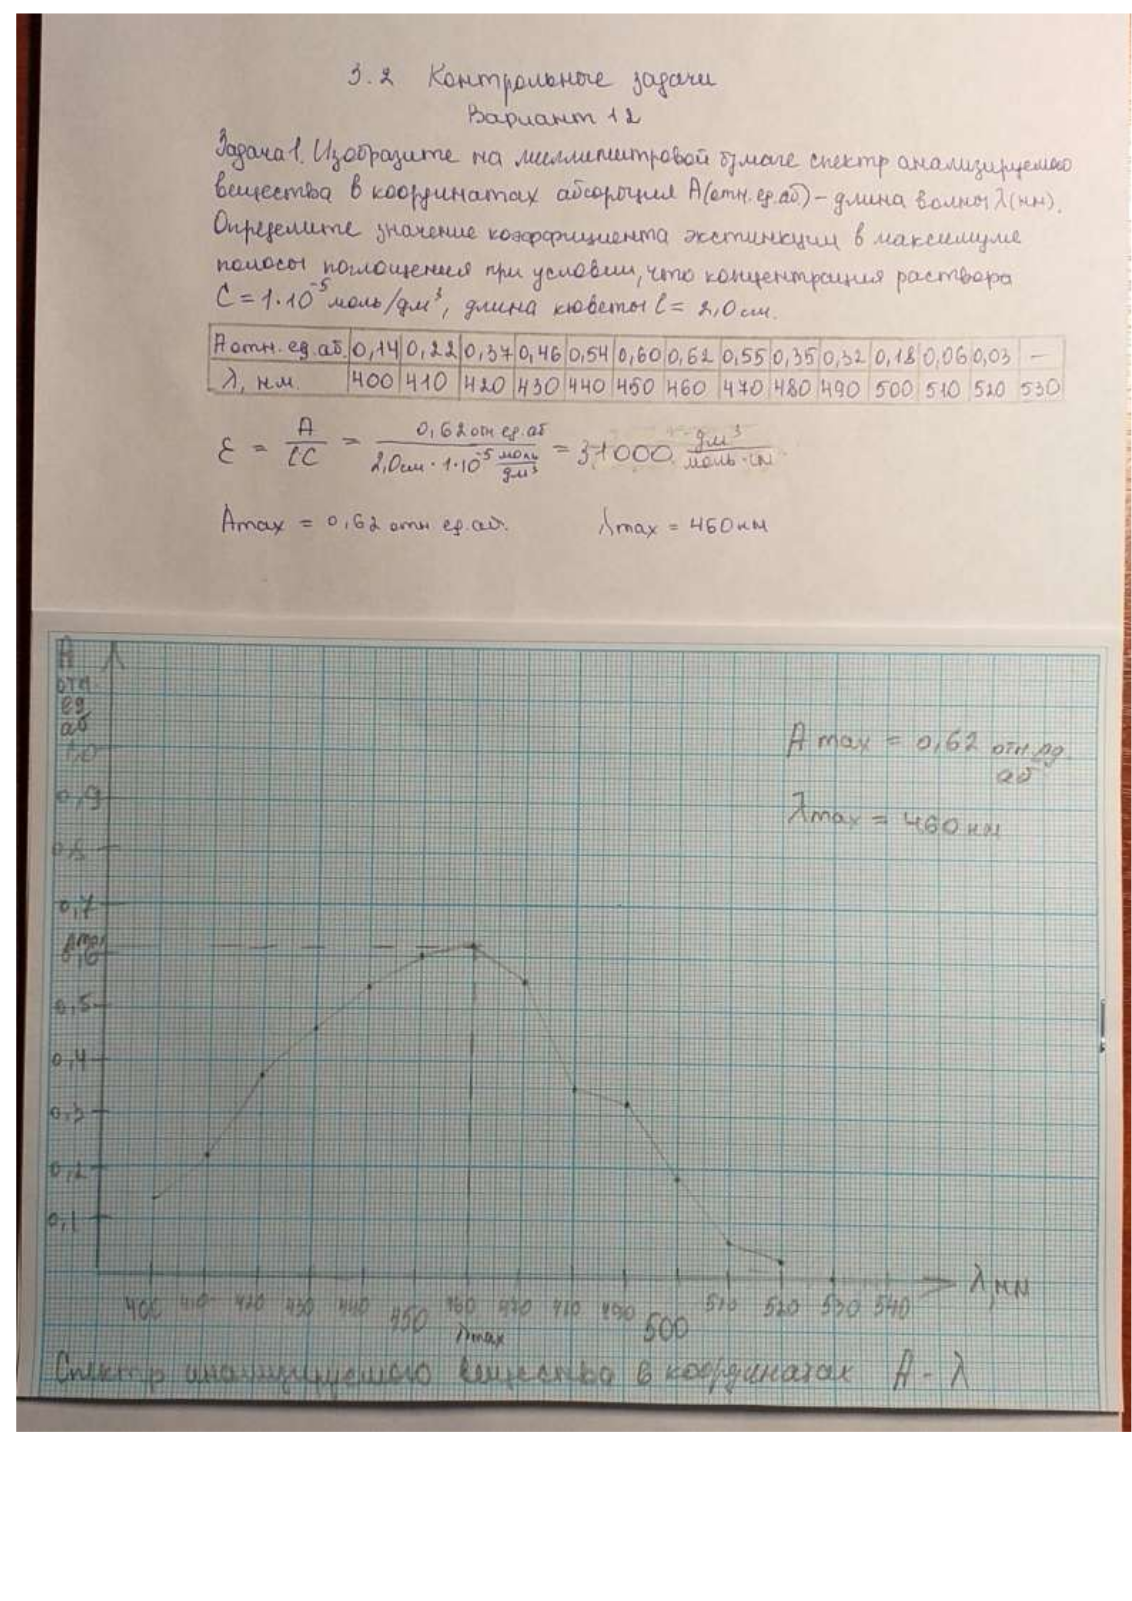 3.2 Контрольные задачи
Вариант 12
Задача 1. Изобразите на миллиметровой бумаге спектр анализируемого
вещества в координатах абсорбция A(отн.ед.аб) – длина волны λ(нм).
Определите значение коэффициента экстинкции в максимуме
полосы поглощения при условии, что концентрация раствора
C = 1·10⁻⁵ моль/дм³, длина кюветы l = 2,0 см.
A отн. ед. аб. 0,14 0,22 0,37 0,46 0,54 0,60 0,62 0,55 0,35 0,32 0,18 0,06 0,03 –
λ, нм. 400 410 420 430 440 450 460 470 480 490 500 510 520 530
ε = A/lC = 0,62 отн ед. аб / 2,0см · 1·10⁻⁵ моль/дм³ = 31000 дм³/моль·см
Amax = 0,62 отн ед. аб. λmax = 460 нм
A
отн.
ед
аб
1,0
0,9
0,8
0,7
Amax
0,6
0,5
0,4
0,3
0,2
0,1
Amax = 0,62 отн.ед.
аб
λmax = 460 нм
400 410 420 430 440 450 460 470 490 500 510 520 530 540 λ, нм
λmax
Спектр анализируемого вещества в координатах A - λ